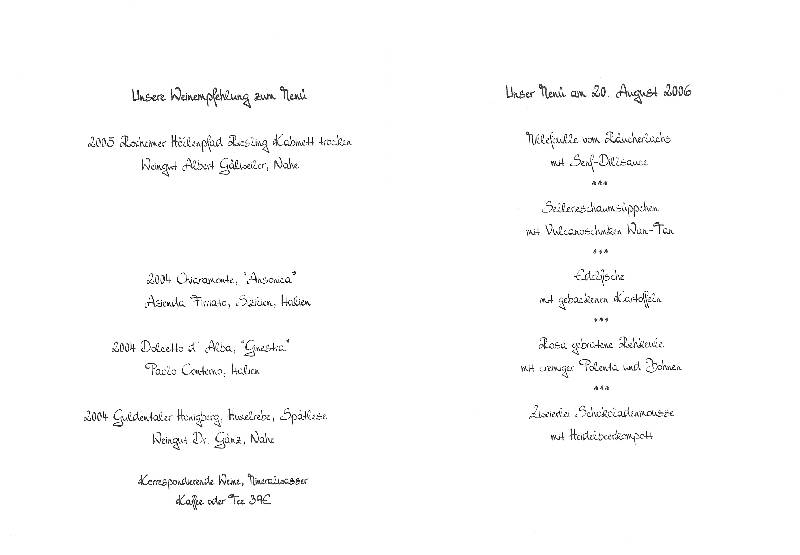 Unsere Weinempfehlung zum Menü
2005 Roxheimer Höllenpfad Riesling Kabinett trocken
Weingut Albert Gälweiler, Nahe
2004 Chiaramonte, "Ansonica"
Azienda Firriato, Sizilien, Italien
2004 Dolcetto d' Alba, "Ginestra"
Paolo Conterno, Italien
2004 Guldentaler Honigberg, Huxelrebe, Spätlese
Weingut Dr. Gänz, Nahe
Korrespondierende Weine, Mineralwasser
Kaffee oder Tee 39€
Unser Menü am 20. August 2006
vom Räucherlachs
mit Senf-Dillsauce
***
Sellerieschaumsüppchen
mit Vulcanoschinken Wan-Tan
***
Edelfische
mit gebackenen Kartoffeln
***
Rosa gebratene Rehkeule
mit cremiger Polenta und Bohnen
***
Zweierlei Schokoladenmousse
mit Heidelbeerkompott